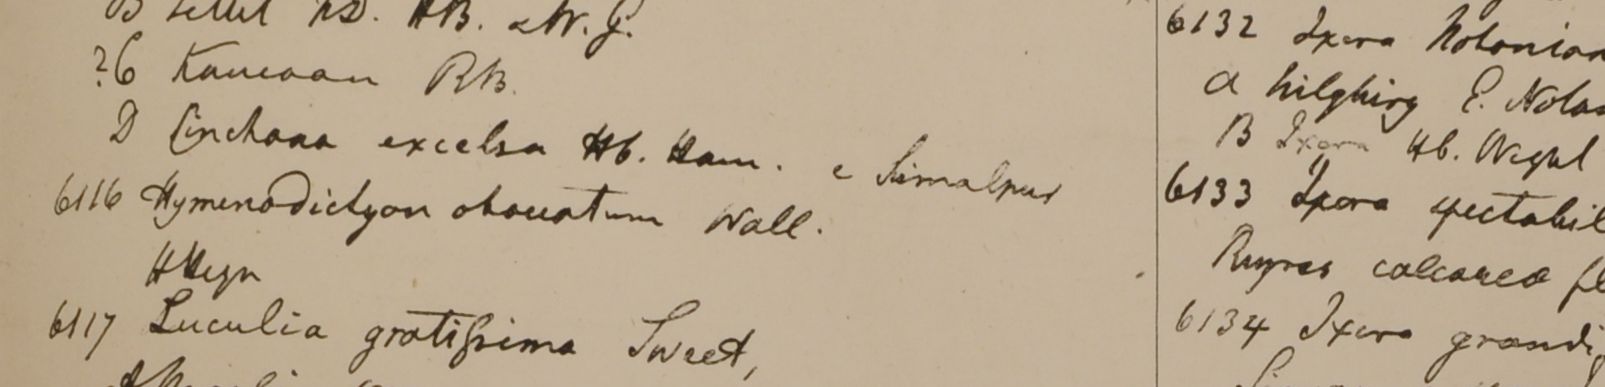 HB. & W. G.
?6 RB.
D Cinchona excelsa Hb. Ham. e Simalpur
6116 Hymenodictyon obovatum Wall.
HHeyn
6117 Luculia gratissima Sweet,
6132 Ixora Notonian
a Nilghiry E. Noton
B Ixora Hb. Wight
6133 Ixora spectabil
calcarea fl
6134 Ixora grandi